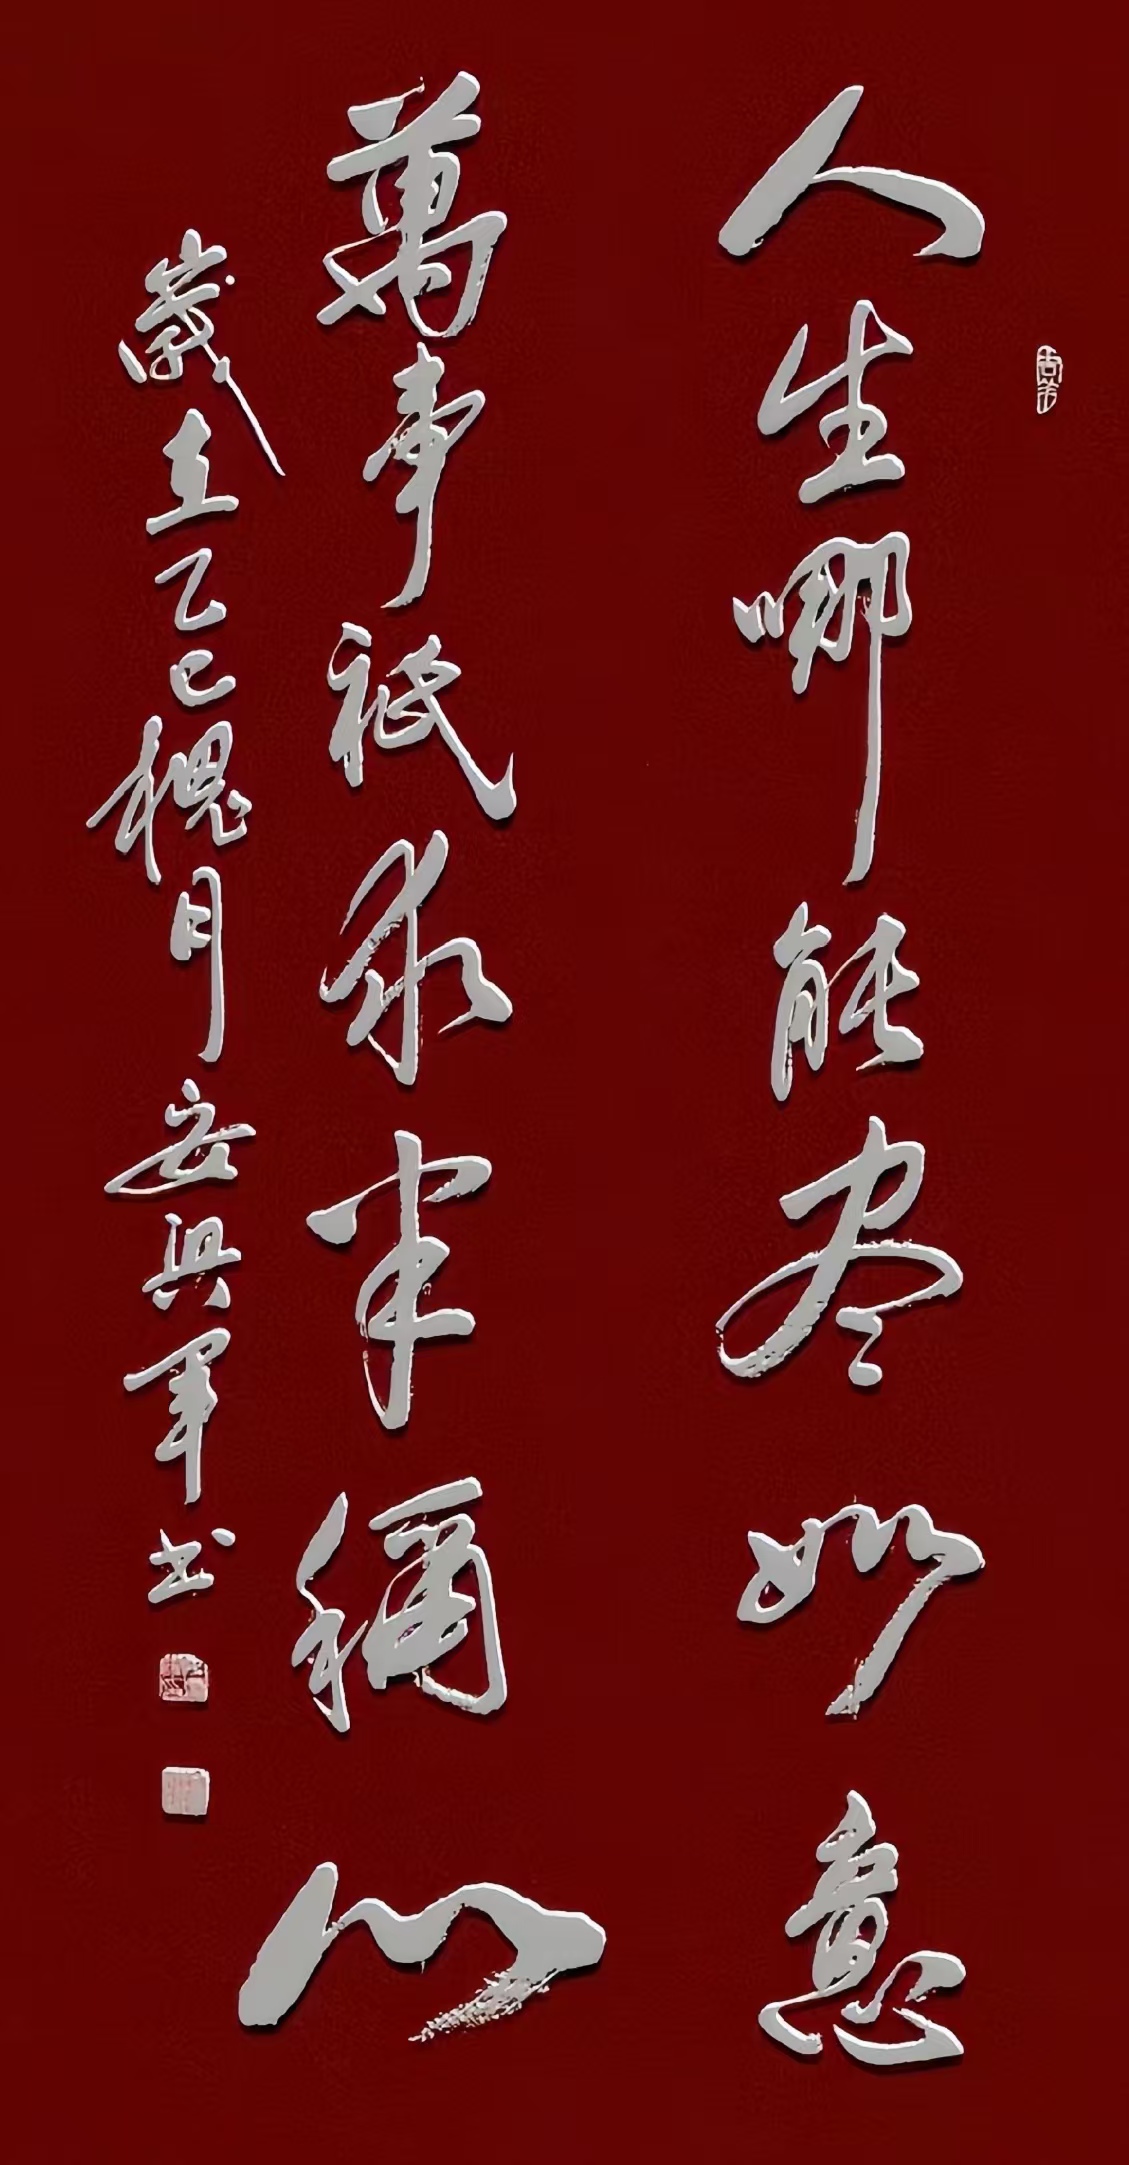 人生哪能尽如意
萬事祇求半稱心
歲在乙巳槐月安興軍书